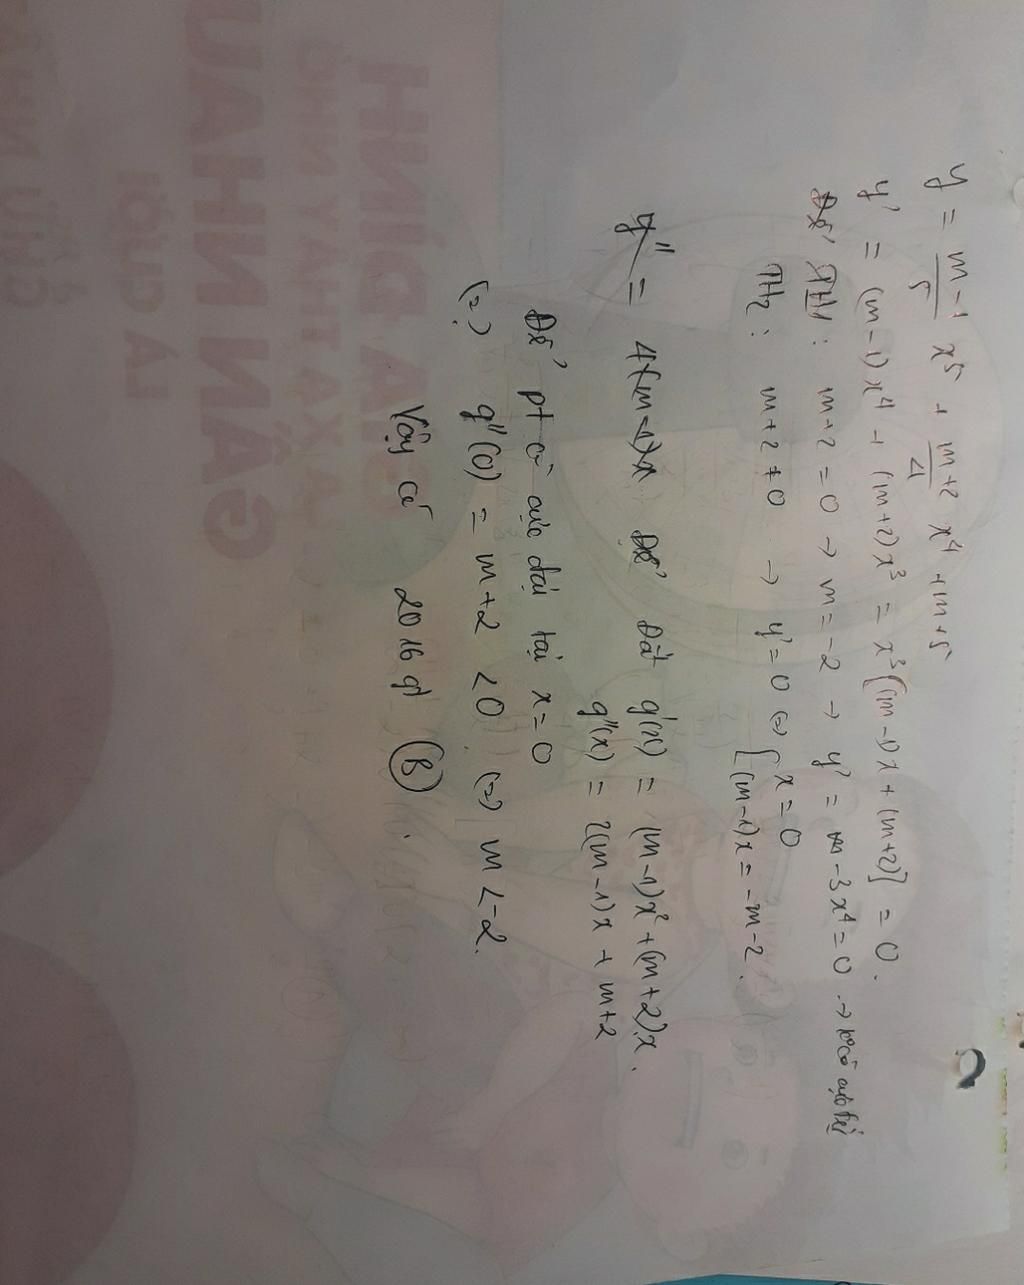 y = \frac{m-1}{5} x^5 + \frac{m+2}{4} x^4 + m+5
y' = (m-1)x^4 + (m+2)x^3 = x^3[(m-1)x + (m+2)] = 0.
TH1: m+2 = 0 → m = -2 → y' = -3x^4 = 0 → ko có cực đại
TH2: m+2 ≠ 0 → y' = 0 (=) [ x = 0
(m-1)x = -m-2.
y'' = 4(m-1)x Đặt g'(x) = (m-1)x^2 + (m+2)x.
g''(x) = 2(m-1)x + m+2
Để pt có cực đại tại x = 0
(=) g''(0) = m+2 < 0 (=) m < -2.
Vậy có 2016 gt (B).